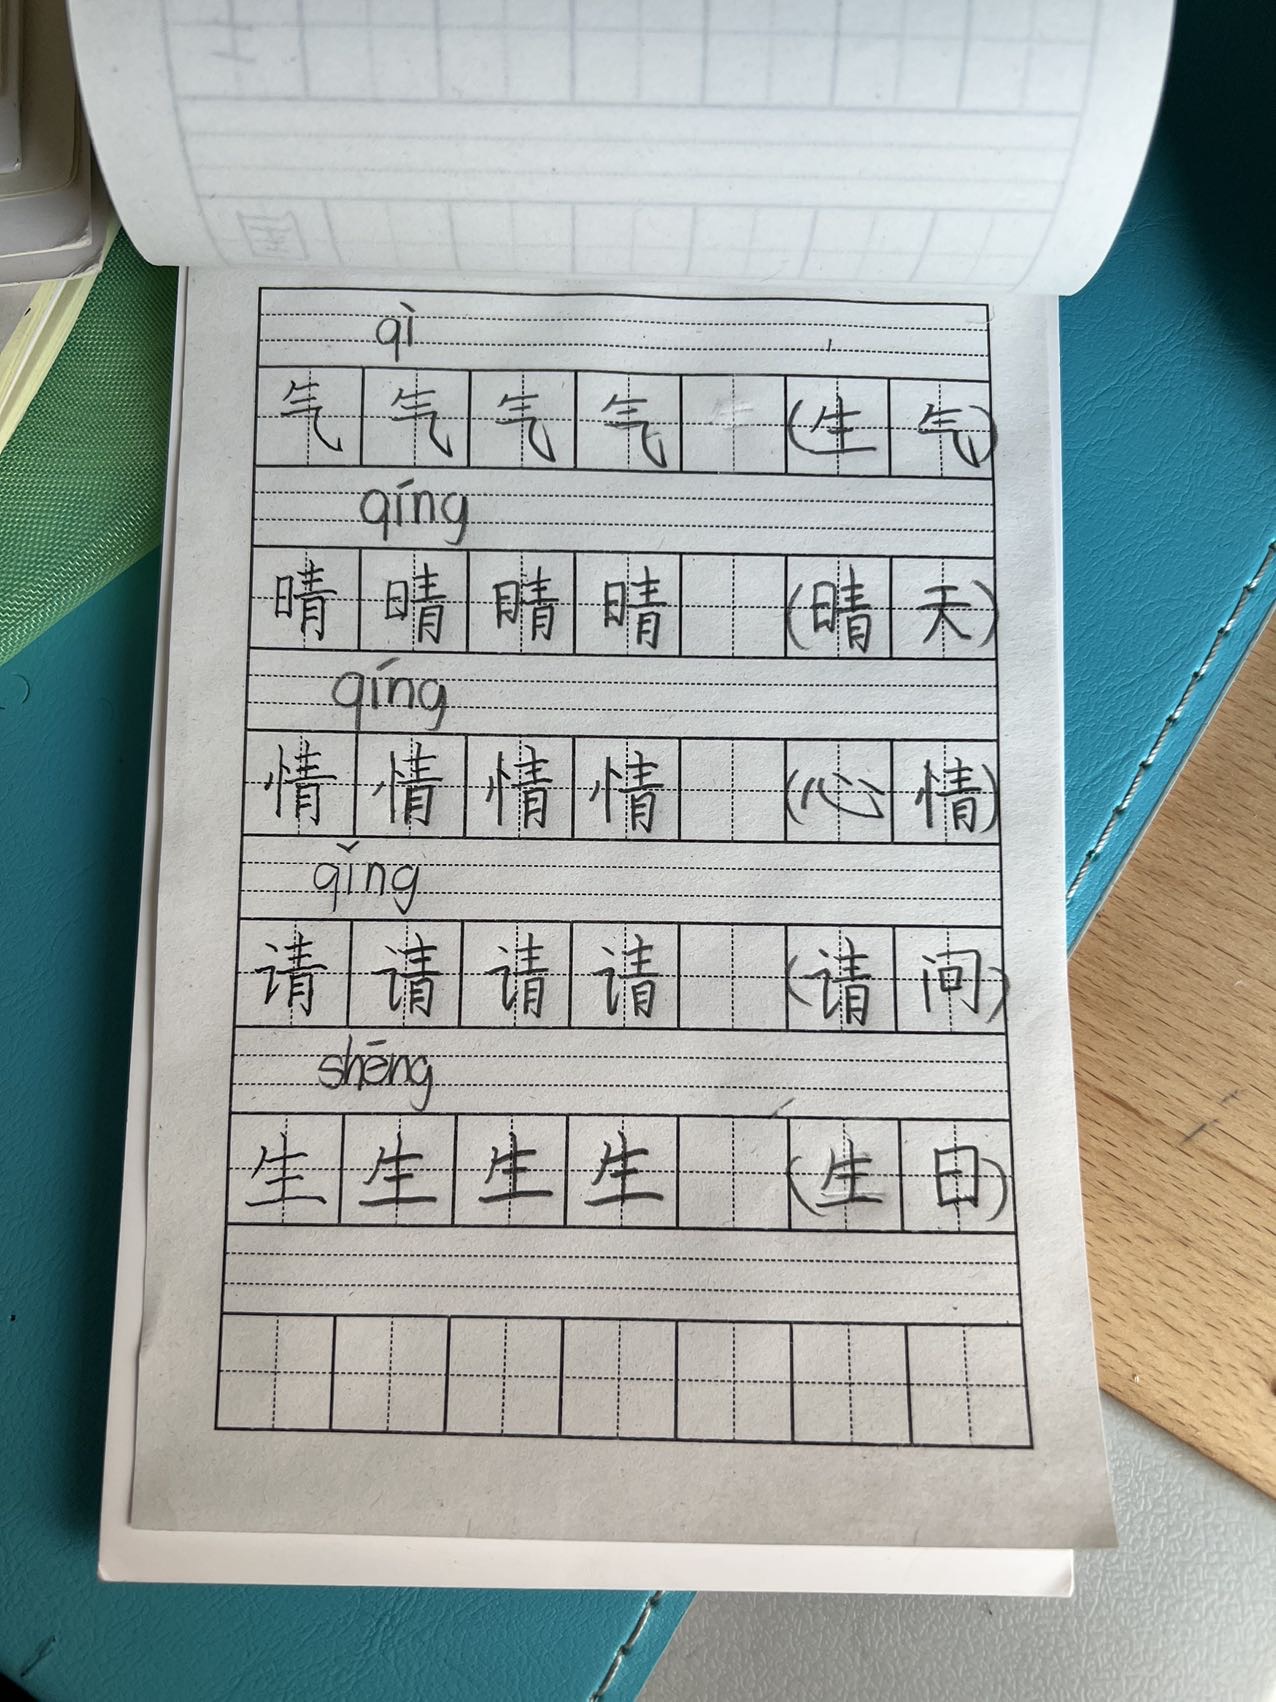 qì
气 气 气 气 (生 气)
qíng
晴 晴 晴 晴 (晴 天)
qíng
情 情 情 情 (心 情)
qǐng
请 请 请 请 (请 问)
shēng
生 生 生 生 (生 日)